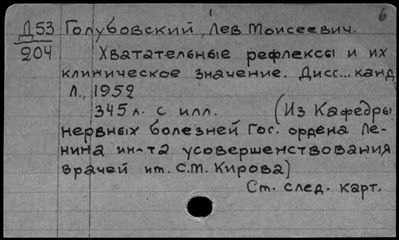 6
Д53 Голубовский, Лев Моисеевич.
204 Хватательные рефлексы и их
клиническое значение. Дисс... канд
Л., 1952
345 л. с илл. (Из Кафедры
нервных болезней Гос. ордена Ле-
нина ин-та усовершенствования
врачей им. С.М. Кирова)
См. след. карт.